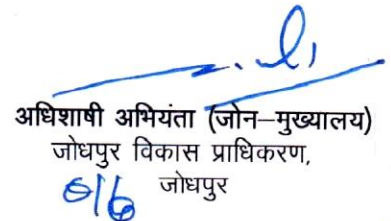 अधिशाषी अभियंता (जोन–मुख्यालय)
जोधपुर विकास प्राधिकरण,
जोधपुर